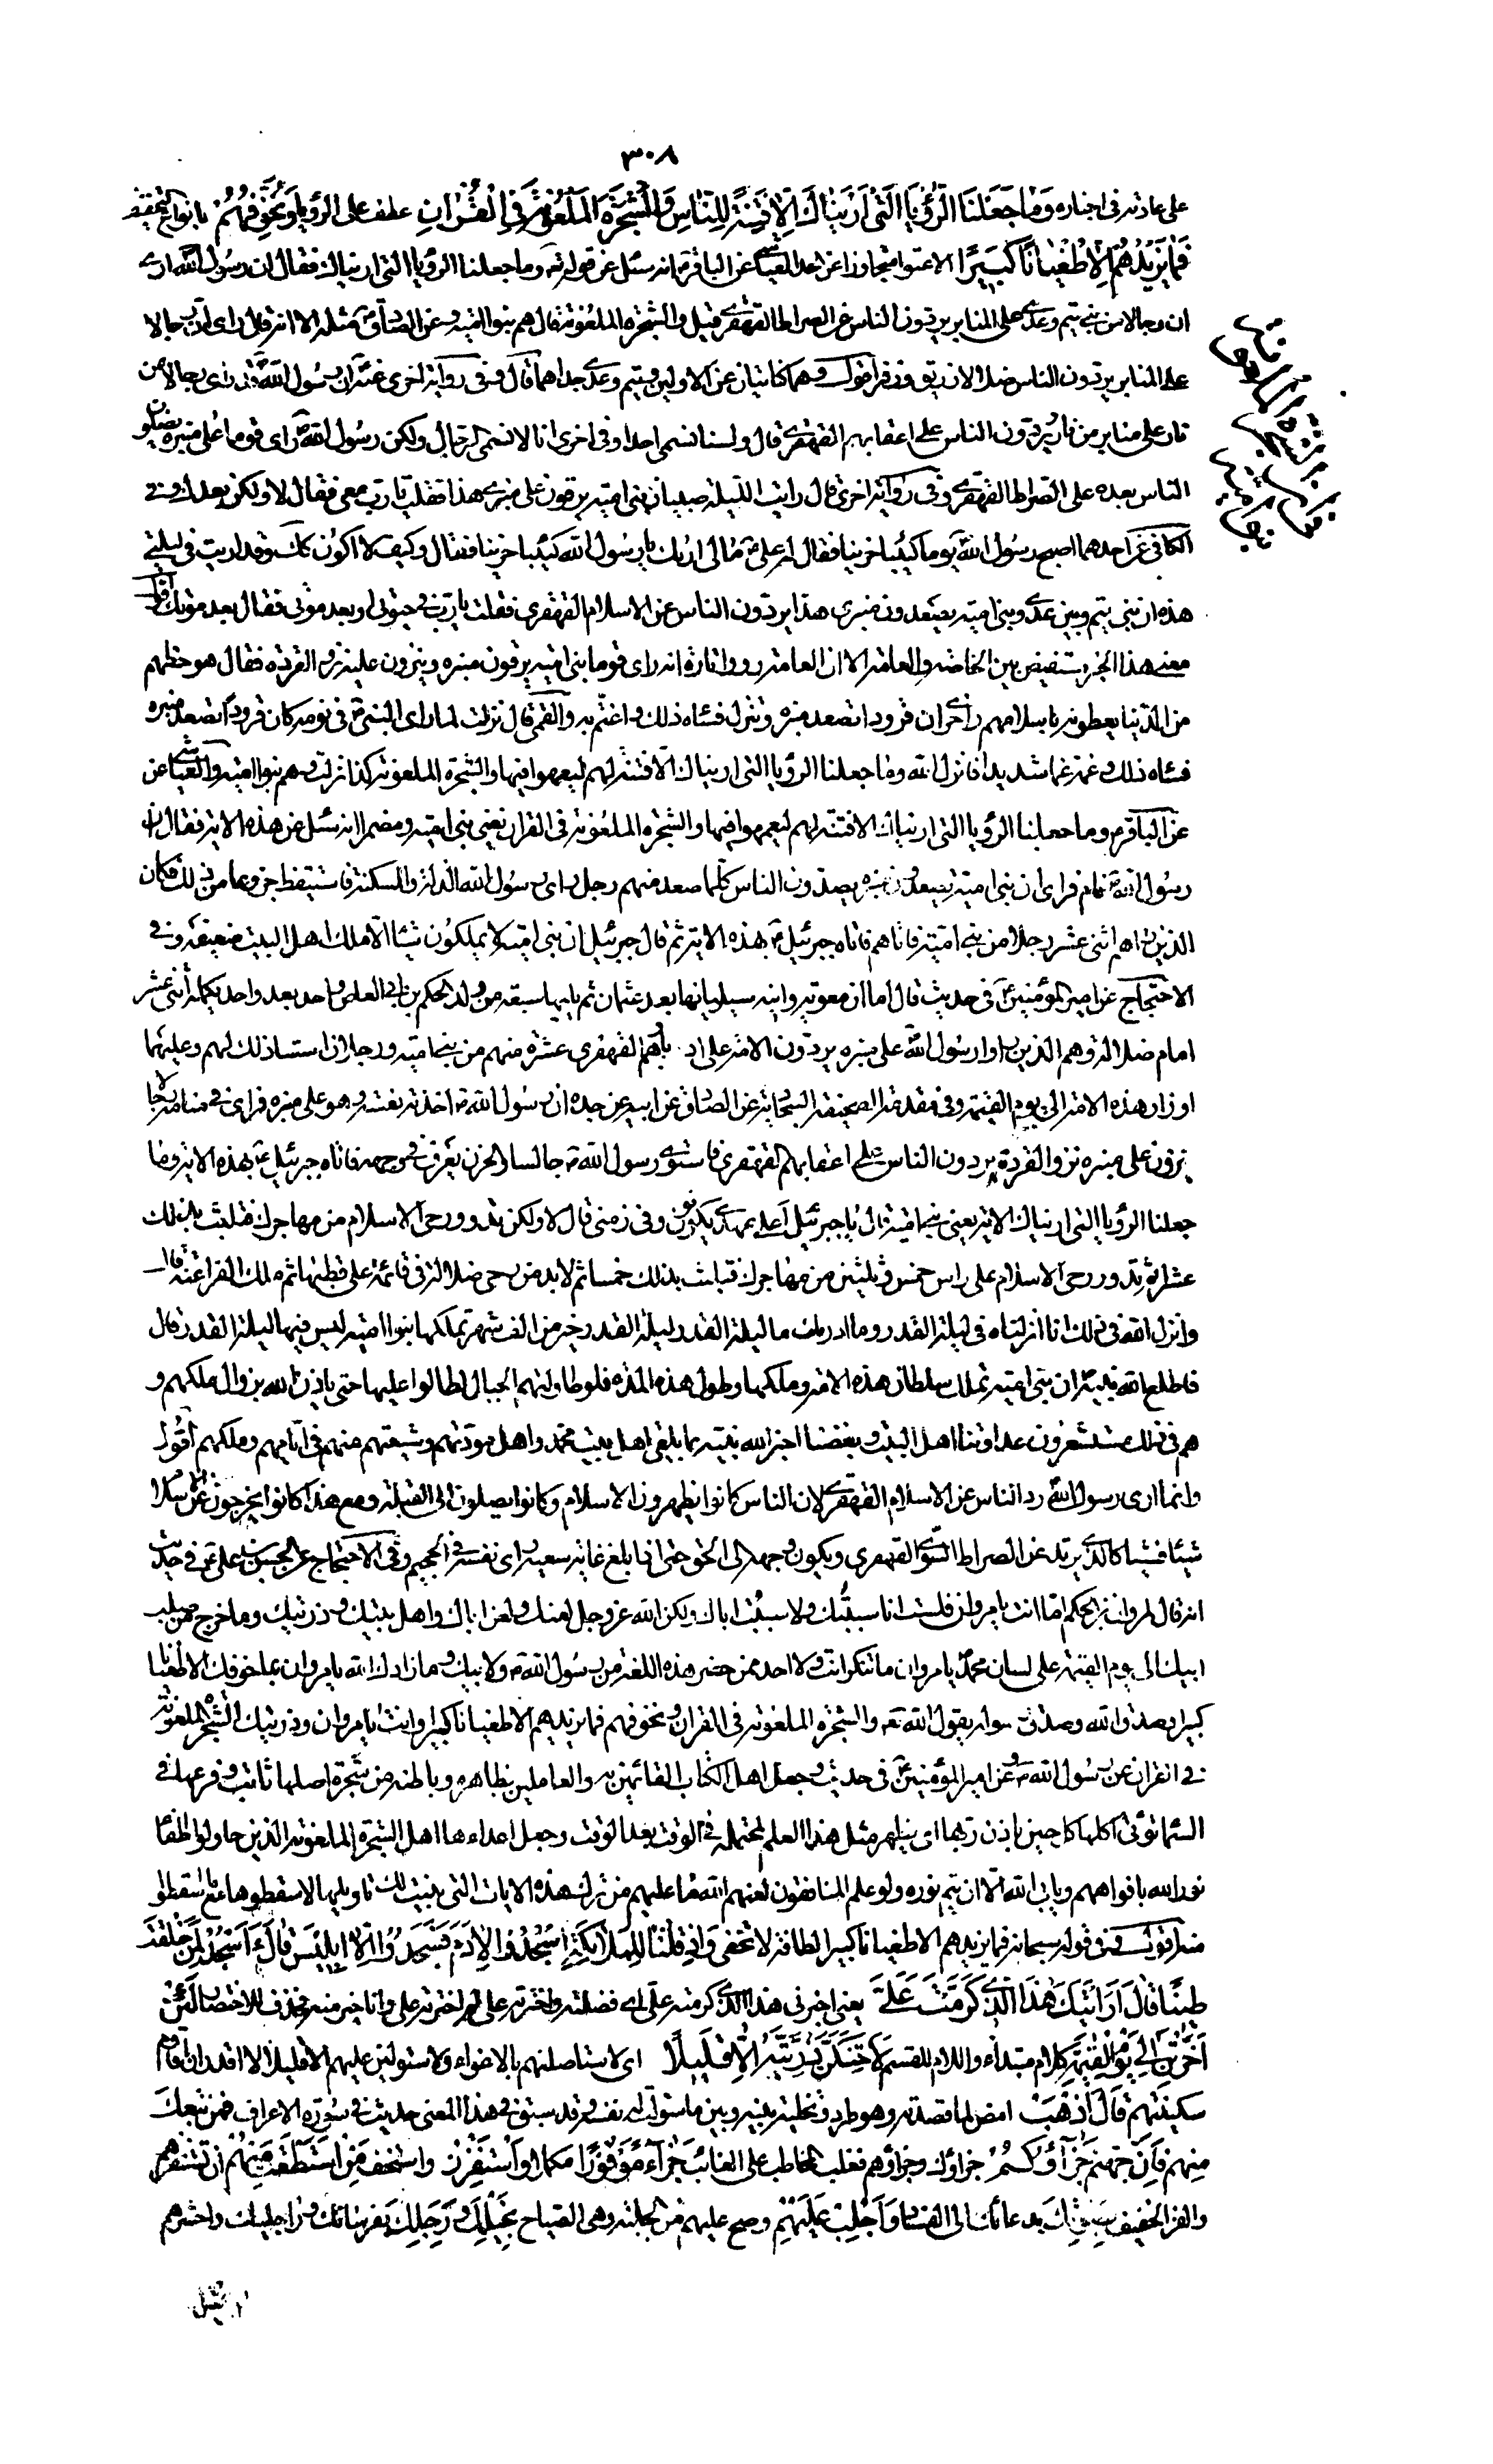 ٣٠٨
على عادته فى اخباره وَمَا جَعَلْنَا الرُّؤْيَا الَّتِى اَرَيْنَاكَ اِلَّا فِتْنَةً لِلنَّاسِ وَالشَّجَرَةَ الْمَلْعُونَةَ فِى الْقُرْاٰنِ عطف على الرؤيا وَنُخَوِّفُهُمْ بانواع التخويف
فَمَا يَزِيدُهُمْ اِلَّا طُغْيَانًا كَبِيرًا الا عتوا متجاوزا عن الحد العياشى عن الباقر انه سئل عن قوله تعـ وما جعلنا الرؤيا التى اريناك فقال ان رسول الله ارى
ان رجالا من بنى تيم وعدى على المنابر يردون الناس عن الصراط القهقرى قيل والشجرة الملعونة قال هم بنو امية وعن الصادق مثله الا انه قال راى ان رجالا
على المنابر يردون الناس ضلالا زريق وزفر اقول وهما كنايتان عن الاولين وتيم وعدى جداهما قال وفى رواية اخرى عنه ان رسول الله قد راى رجالا من
نار على منابر من نار يردون الناس على اعقابهم القهقرى قال ولسنا نسمى احدا وفى اخرى انا لا نسمى الرجال ولكن رسول الله راى قوما على منبره يضلون
الناس بعده على الصراط القهقرى وفى رواية اخرى قال رايت الليلة صبيان بنى امية يرقون على منبرى هذا فقلت يا رب معى فقال لا ولكن بعدك وفى
الكافى عن احدهما اصبح رسول الله يوما كئيبا حزينا فقال له على ما لى اراك يا رسول الله كئيبا حزينا فقال وكيف لا اكون كذلك وقد اريت فى ليلتى
هذه ان بنى تيم وبنى عدى وبنى امية يصعدون منبرى هذا يردون الناس عن الاسلام القهقرى فقلت يا رب فى حيوتى او بعد موتى فقال بعد موتك اقول
معنى هذا الخبر مستفيض بين الخاصة والعامة الا ان العامة رووا تارة انه راى قوما بنى امية يرقون منبره وينزون عليه نزو القردة فقال هو حظهم
من الدنيا يعطونه باسلامهم واخرى ان قرودا تصعد منبره وتنزل فساءه ذلك واغتم به والقمى قال نزلت لما راى النبى فى نومه كان قرودا تصعد منبره
فساءه ذلك وغمه غما شديدا فانزل الله وما جعلنا الرؤيا التى اريناك الا فتنة لهم ليعمهوا فيها والشجرة الملعونة كذا نزلت وهم بنو امية والعياشى عن
عن الباقر وما جعلنا الرؤيا التى اريناك الا فتنة لهم ليعمهوا فيها والشجرة الملعونة فى القران يعنى بنى امية ومضمرا انه سئل عن هذه الاية فقال ان
رسول الله نام فراى ان بنى امية يصعدون منبره يصدون الناس كلما صعد منهم رجل راى رسول الله الذلة والمسكنة فاستيقظ جزوعا من ذلك فكان
الذين راهم اثنى عشر رجلا من بنى امية فاتاهم فاتاه جبرئيل بهذه الاية ثم قال جبرئيل ان بنى امية لا يملكون شيئا الا ملك اهل البيت ضعيفه وفى
الاحتجاج عن امير المؤمنين فى حديث قال اما ان معوية وابنه سيليانها بعد عثمان ثم يليها سبعة من ولد الحكم بن ابى العاص واحد بعد واحد تكملة اثنى عشر
امام ضلالة وهم الذين راى رسول الله على منبره يردون الامة على ادبارهم القهقرى عشرة منهم من بنى امية ورجلان اسسا ذلك لهم وعليهما
اوزار هذه الامة الى يوم القيمة وفى مقدمة الصحيفة السجادية عن الصادق عن ابيه عن جده ان رسول الله اخذته نعسة وهو على منبره فراى فى منامه رجالا
ينزون على منبره نزو القردة يردون الناس على اعقابهم القهقرى فاستوى رسول الله جالسا والحزن يعرف فى وجهه فاتاه جبرئيل بهذه الاية وما
جعلنا الرؤيا التى اريناك الاية يعنى بنى امية قال يا جبرئيل اعلى عهدى يكونون وفى زمنى قال لا ولكن تدور رحى الاسلام من مهاجرك فتلبث بذلك
عشرا ثم تدور رحى الاسلام على راس خمس وثلثين من مهاجرك فتلبث بذلك خمسا ثم لا بد من رحى ضلالة هى قائمة على قطبها ثم ملك الفراعنة قال
وانزل الله فى ذلك انا انزلناه فى ليلة القدر وما ادريك ما ليلة القدر ليلة القدر خير من الف شهر تملكها بنو امية ليس فيها ليلة القدر قال
فاطلع الله نبيه ان بنى امية تملك سلطان هذه الامة وملكها وطول هذه المدة فلو طاولتهم الجبال لطالوا عليها حتى ياذن الله بزوال ملكهم و
هم فى ذلك مستشعرون عداوتنا اهل البيت وبغضنا اخبر الله نبيه بما يلقى اهل بيت محمد واهل مودتهم وشيعتهم منهم فى ايامهم وملكهم اقول
وانما ارى رسول الله رد الناس عن الاسلام القهقرى لان الناس كانوا يظهرون الاسلام وكانوا يصلون الى القبلة ومع هذا كانوا يخرجون عن الاسلام
شيئا فشيئا كالذى يرتد عن الصراط السوى القهقرى ويكون وجهه الى الحق حتى اذا بلغ غاية سعيه راى نفسه فى الجحيم وفى الاحتجاج عن الحسن بن على فى حديث
انه قال لمروان بن الحكم اما انت يا مروان فلست انا سببتك ولا سببت اباك ولكن الله عز وجل لعنك ولعن اباك واهل بيتك وذريتك وما خرج من صلب
ابيك الى يوم القيمة على لسان محمد يا مروان ما تنكر انت ولا احد ممن حضر هذه اللعنة من رسول الله ولابيك وما زادك الله يا مروان بما خوفك الا طغيانا
كبيرا وصدق الله وصدق رسوله يقول الله تعـ والشجرة الملعونة فى القران ونخوفهم فما يزيدهم الا طغيانا كبيرا وانت يا مروان وذريتك الشجرة الملعونة
فى القران عن رسول الله وعن امير المؤمنين فى حديث وجعل اهل الكتاب القائمين به والعاملين بظاهره وباطنه من شجرة اصلها ثابت وفرعها فى
السماء تؤتى اكلها كل حين باذن ربها اى يظهر مثل هذا العلم لمحتمله فى الوقت بعد الوقت وجعل اعداءها اهل الشجرة الملعونة الذين حاولوا اطفاء
نور الله بافواههم ويابى الله الا ان يتم نوره ولو علم المنافقون لعنهم الله ما عليهم من ترك هذه الايات التى بينت لك تاويلها لاسقطوها مع ما اسقطوا
منه اقول وفى قوله سبحانه فما يزيدهم الا طغيانا كبيرا لطافة لا تخفى وَاِذْ قُلْنَا لِلْمَلٰئِكَةِ اسْجُدُوا لِاٰدَمَ فَسَجَدُوا اِلَّا اِبْلِيسَ قَالَ ءَاَسْجُدُ لِمَنْ خَلَقْتَ
طِينًا قَالَ اَرَاَيْتَكَ هٰذَا الَّذِى كَرَّمْتَ عَلَىَّ يعنى اخبرنى هذا الذى كرمته على اى فضلته واخترته على لم اخترته على وانا خير منه فحذف للاختصار لَئِنْ
اَخَّرْتَنِ اِلٰى يَوْمِ الْقِيٰمَةِ كلام مبتداء واللام للقسم لَاَحْتَنِكَنَّ ذُرِّيَّتَهُ اِلَّا قَلِيلًا اى لاستاصلنهم بالاغواء ولاستولين عليهم الا قليلا لا اقدر ان اقاوم
سكينتهم قَالَ اذْهَبْ امض لما قصدته وهو طرد وتخلية بينه وبين ما سولت له نفسه وقد سبق فى هذا المعنى حديث فى سورة الاعراف فَمَنْ تَبِعَكَ
مِنْهُمْ فَاِنَّ جَهَنَّمَ جَزَآؤُكُمْ جزاؤك وجزاؤهم فغلب المخاطب على الغائب جَزَآءً مَوْفُورًا مكملا وَاسْتَفْزِزْ واستخف مَنِ اسْتَطَعْتَ مِنْهُمْ ان تستفزهم
والفز الخفيف بِصَوْتِكَ بدعائك الى الفساد وَاَجْلِبْ عَلَيْهِمْ وصح عليهم من الجلبة وهى الصياح بِخَيْلِكَ وَرَجِلِكَ بفرسانك وراجليك واحشرهم